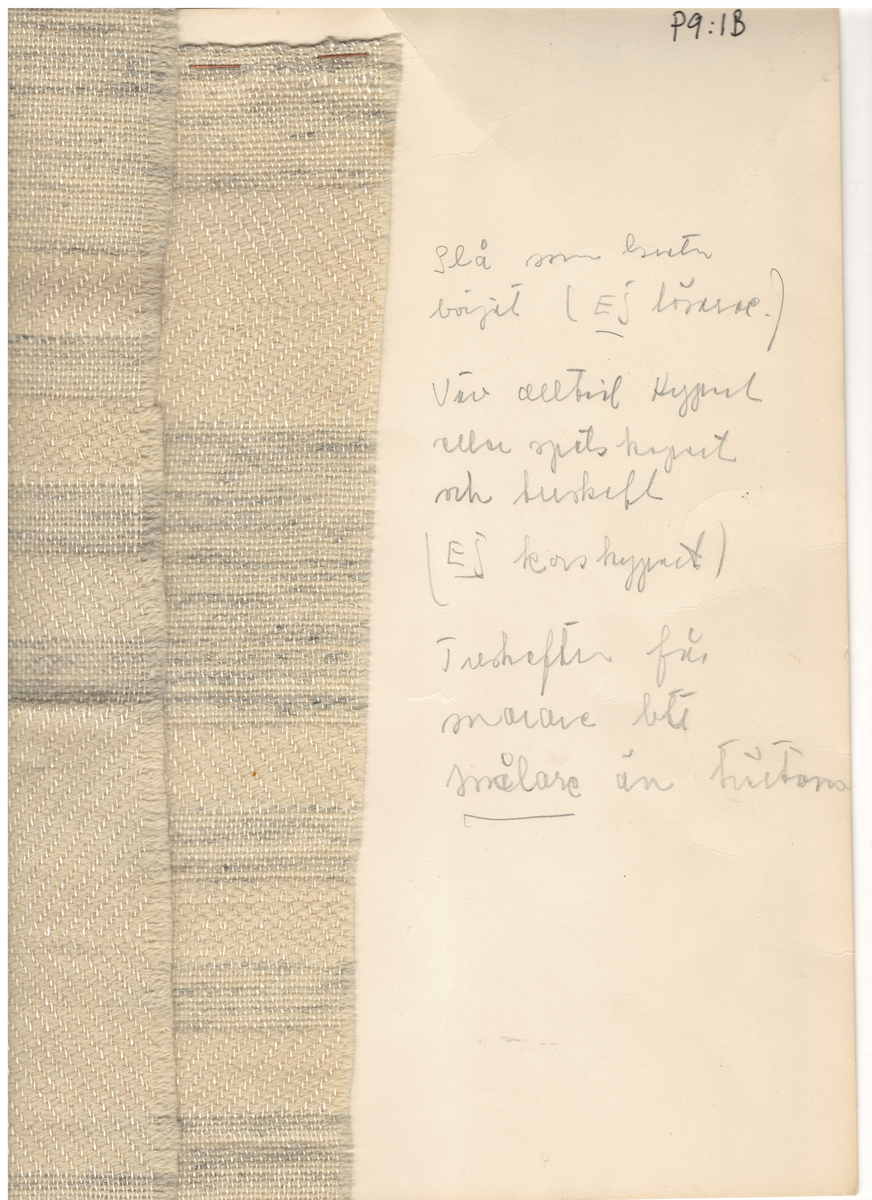 P9:1B
Slå som
börjat (Ej lösare.)
Väv alltid Kypert
eller spetskypert
och tuskaft
(Ej korskypert)
Tuskaften får
snarare bli
smalare än tvärtom